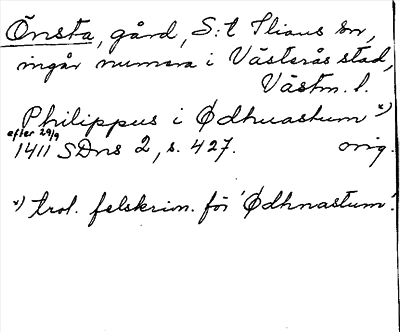 Önsta, gård, S:t Ilians sn,
ingår numera i Västerås stad,
Västm. l.
Philippus i Ødhuastum x)
efter 29/9
1411 SDns 2, s. 427. orig.
x) trol. felskrivn. för 'Ødhnastum'.